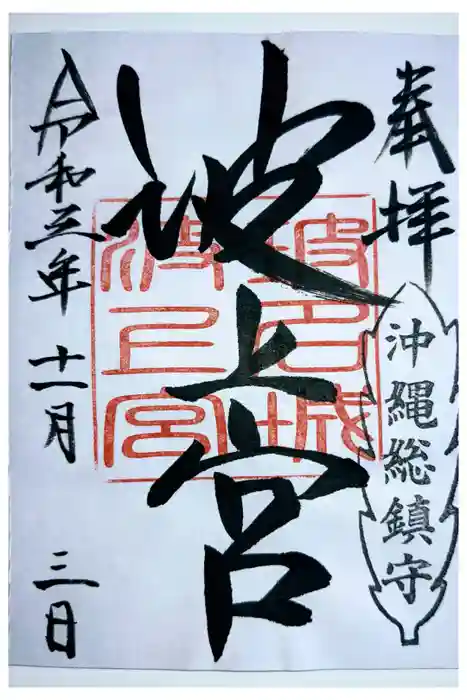 奉拝
沖縄総鎮守
波上宮
波上宮
令和三年 十一月 三日